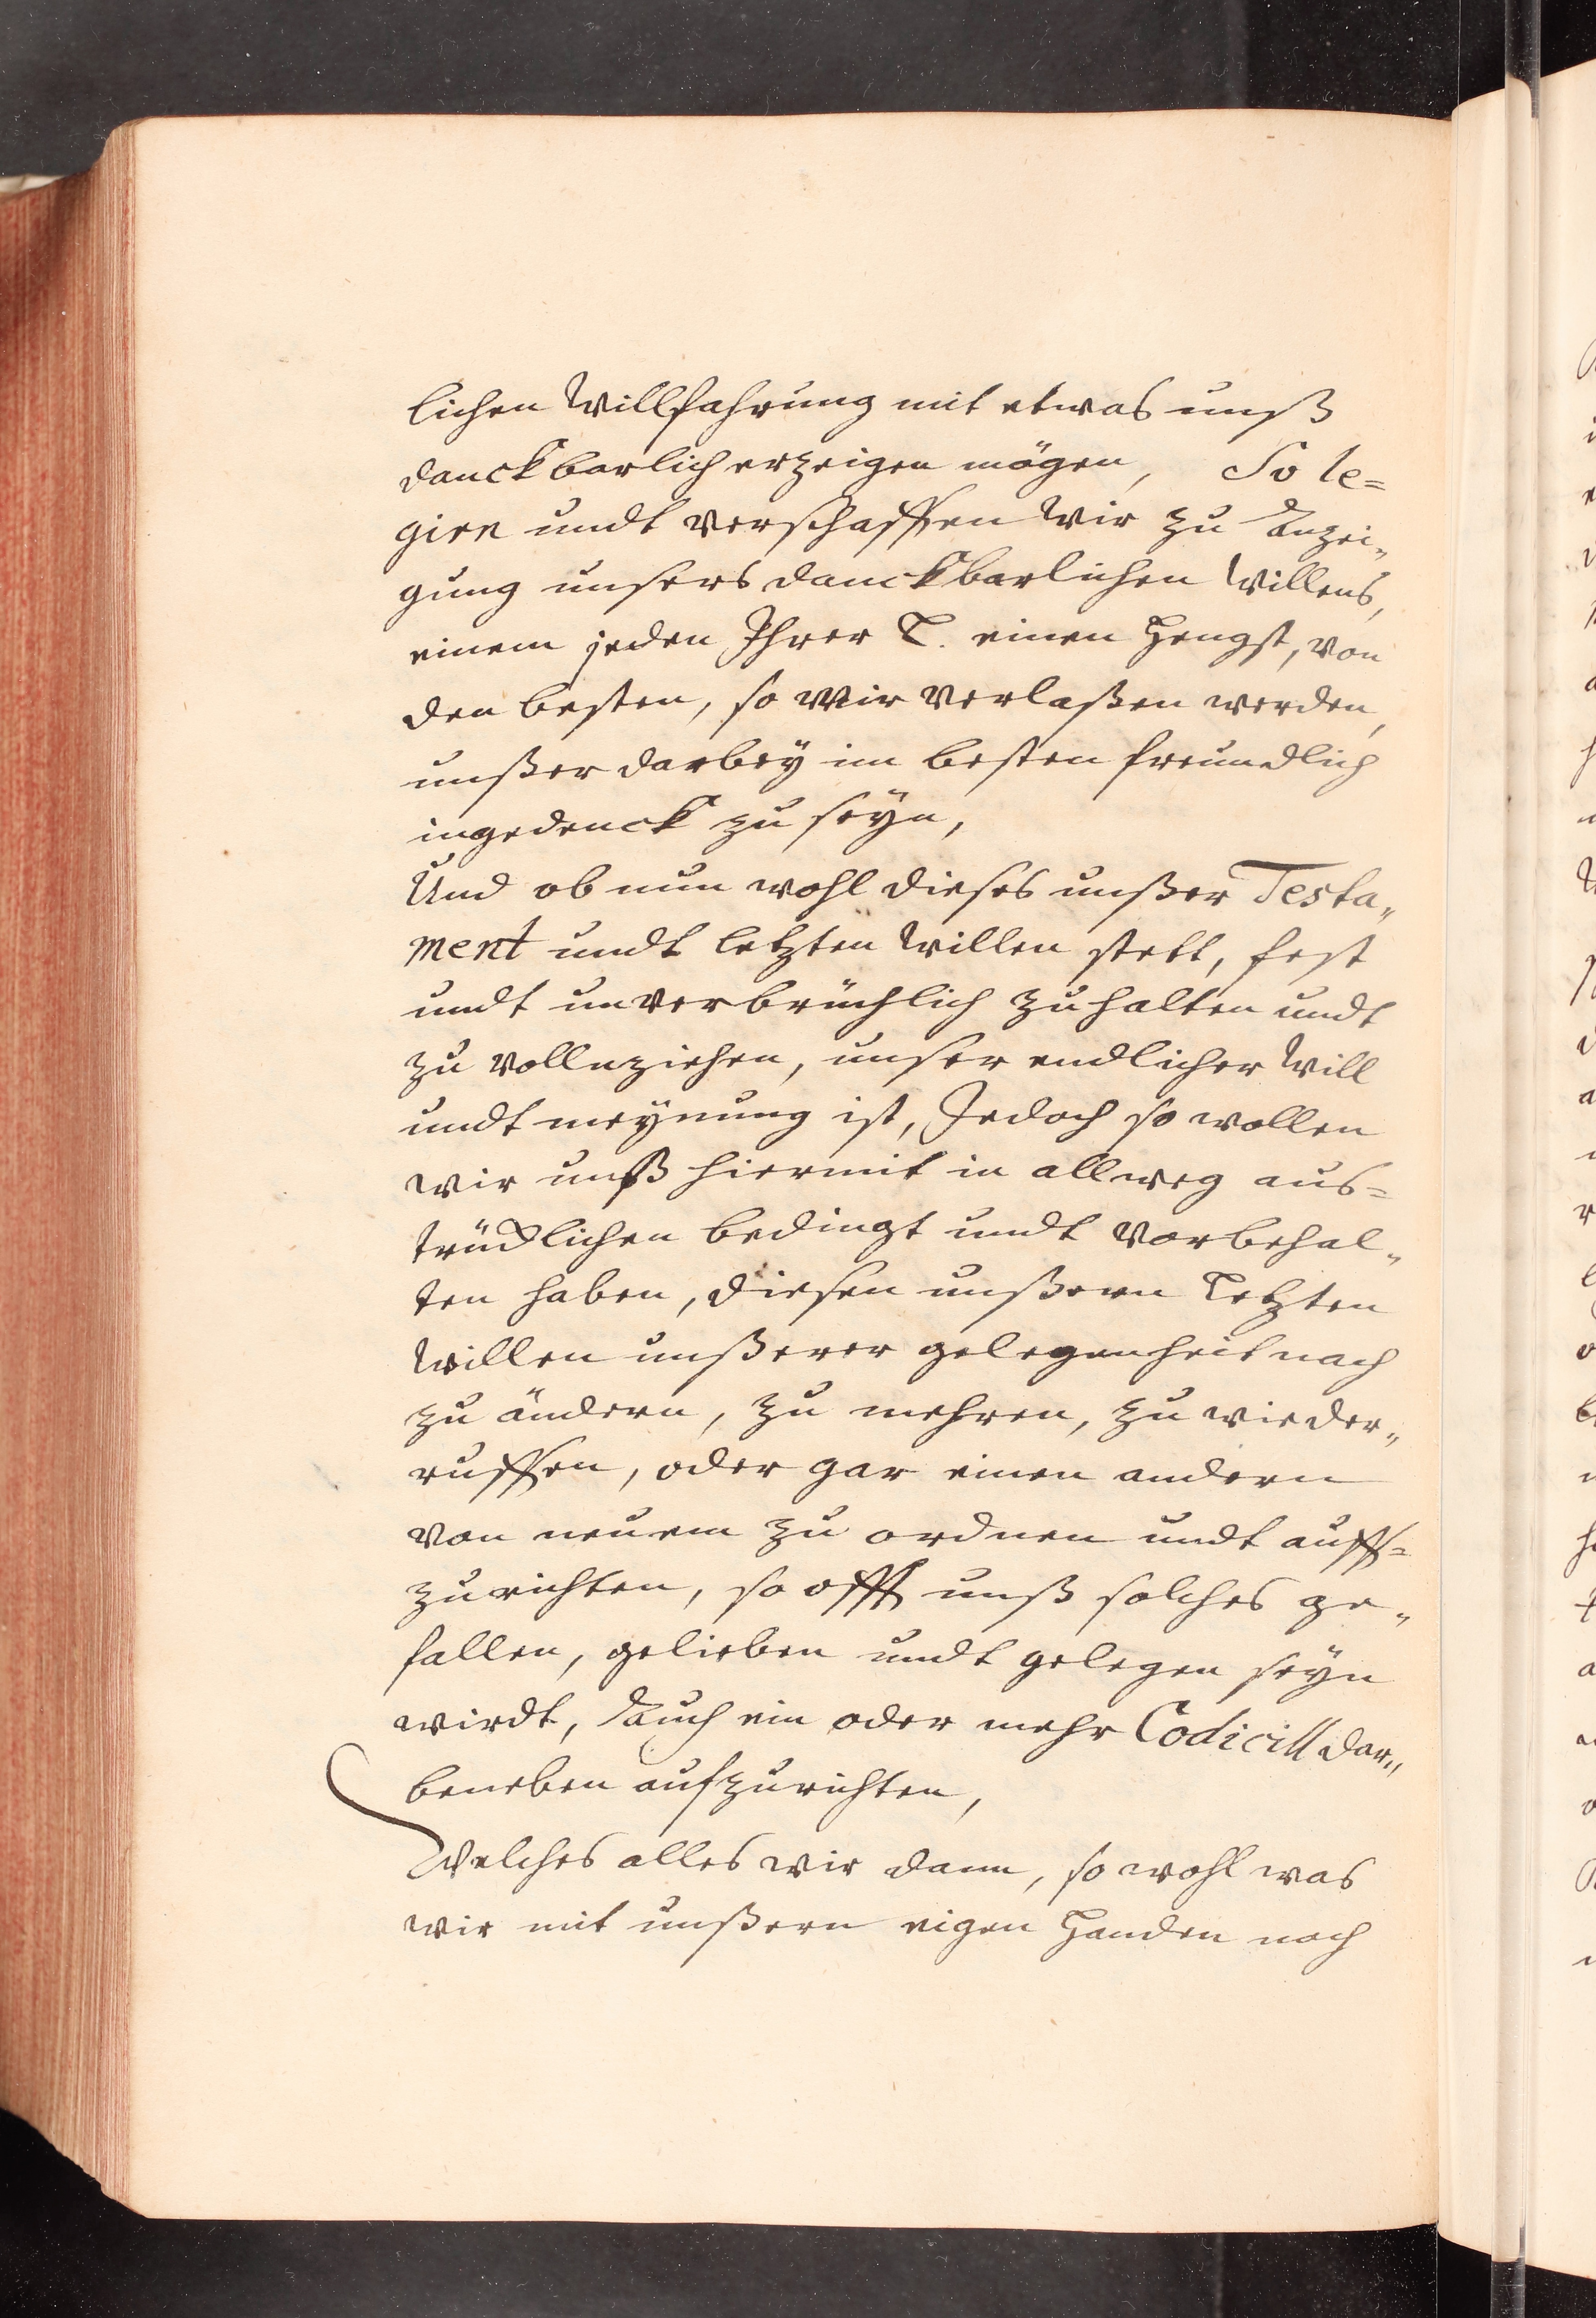 lichen Willfahrung mit etwas unß
danckbarlich erzeigen mögen, So le=
giren undt verschaffen Wir zu Anzei„
gung unsers danckbarlichen Willens,
einem jeden Ihrer L. einen Hengst, von
den besten, so Wir verlaßen werden,
unßer darbey im besten freundlich
ingedenck zu seyn,
Und ob nun wohl dieses unßer Testa„
ment undt letzten Willen stett, fest
undt unverbrüchlich zu halten undt
zu vollnziehen, unser endlicher Will
undt meynung ist, Jedoch so wollen
wir unß hiermit in allweg aus=
trücklichen bedingt undt vorbehal„
ten haben, diesen unßern Letzten
Willen unßerer gelegenheit nach
zu ändern, zu mehren, zu wieder„
ruffen, oder gar einen andern
von neuem zu ordnen undt auff=
zurichten, so offt unß solches ge„
fallen, gelieben undt gelegen seyn
wirdt, Auch ein oder mehr Codicill dar„
beneben aufzurichten,
Welches alles wir dann, so wohl was
wir mit unßern eigen Handen noch